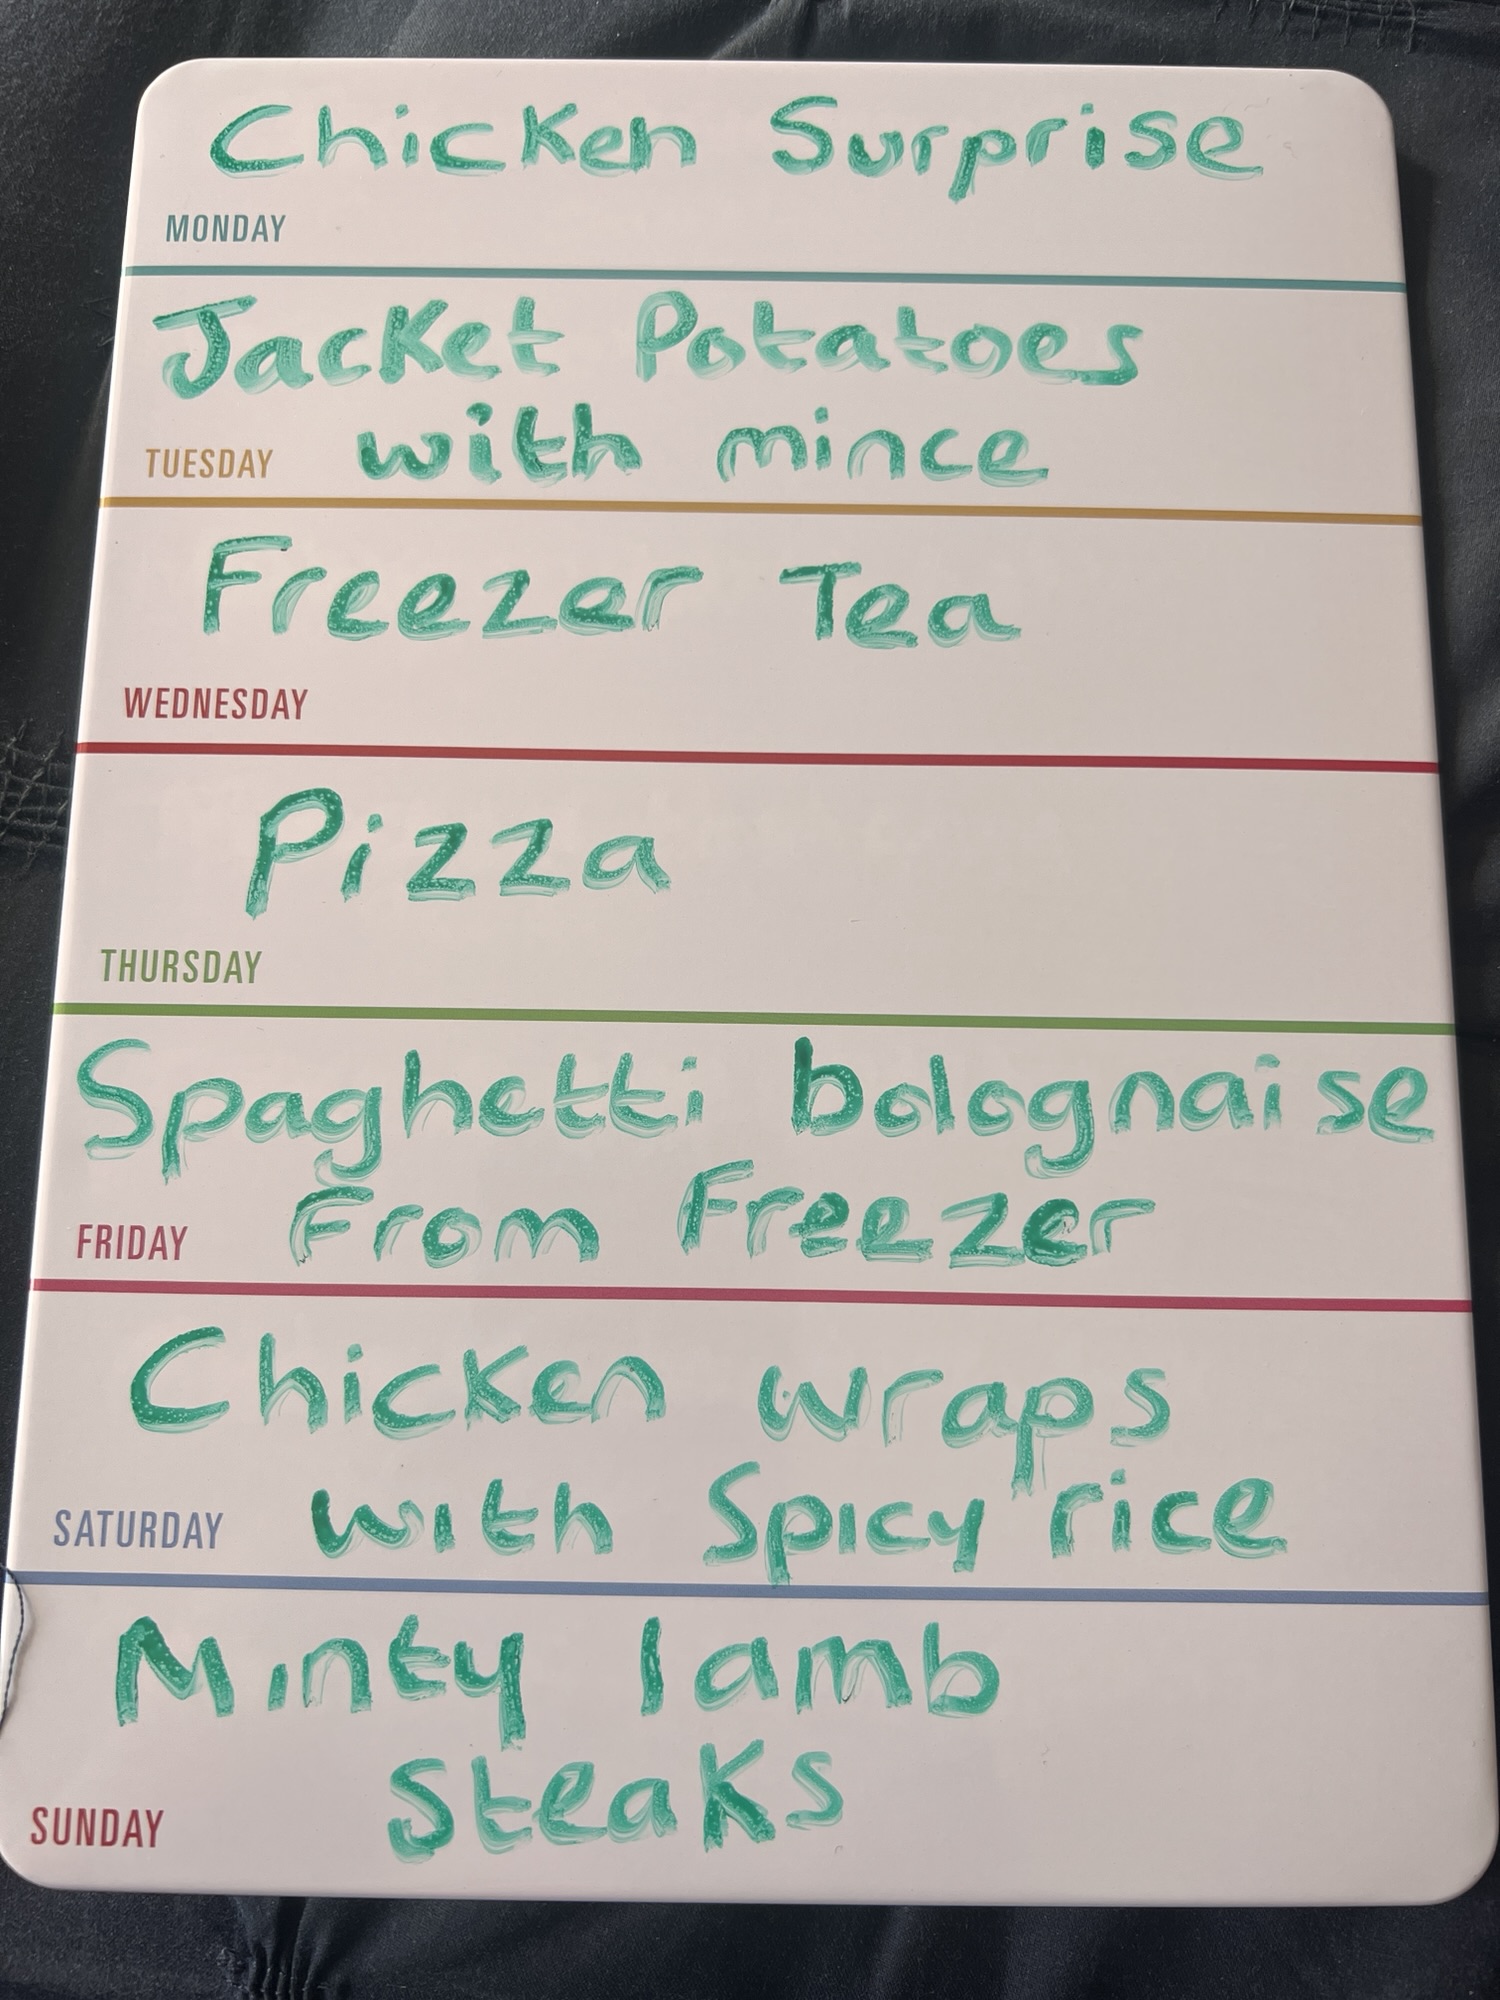 Chicken Surprise
MONDAY
Jacket Potatoes
with mince
TUESDAY
Freezer Tea
WEDNESDAY
Pizza
THURSDAY
Spaghetti bolognaise
From Freezer
FRIDAY
Chicken wraps
with Spicy rice
SATURDAY
Minty lamb
Steaks
SUNDAY